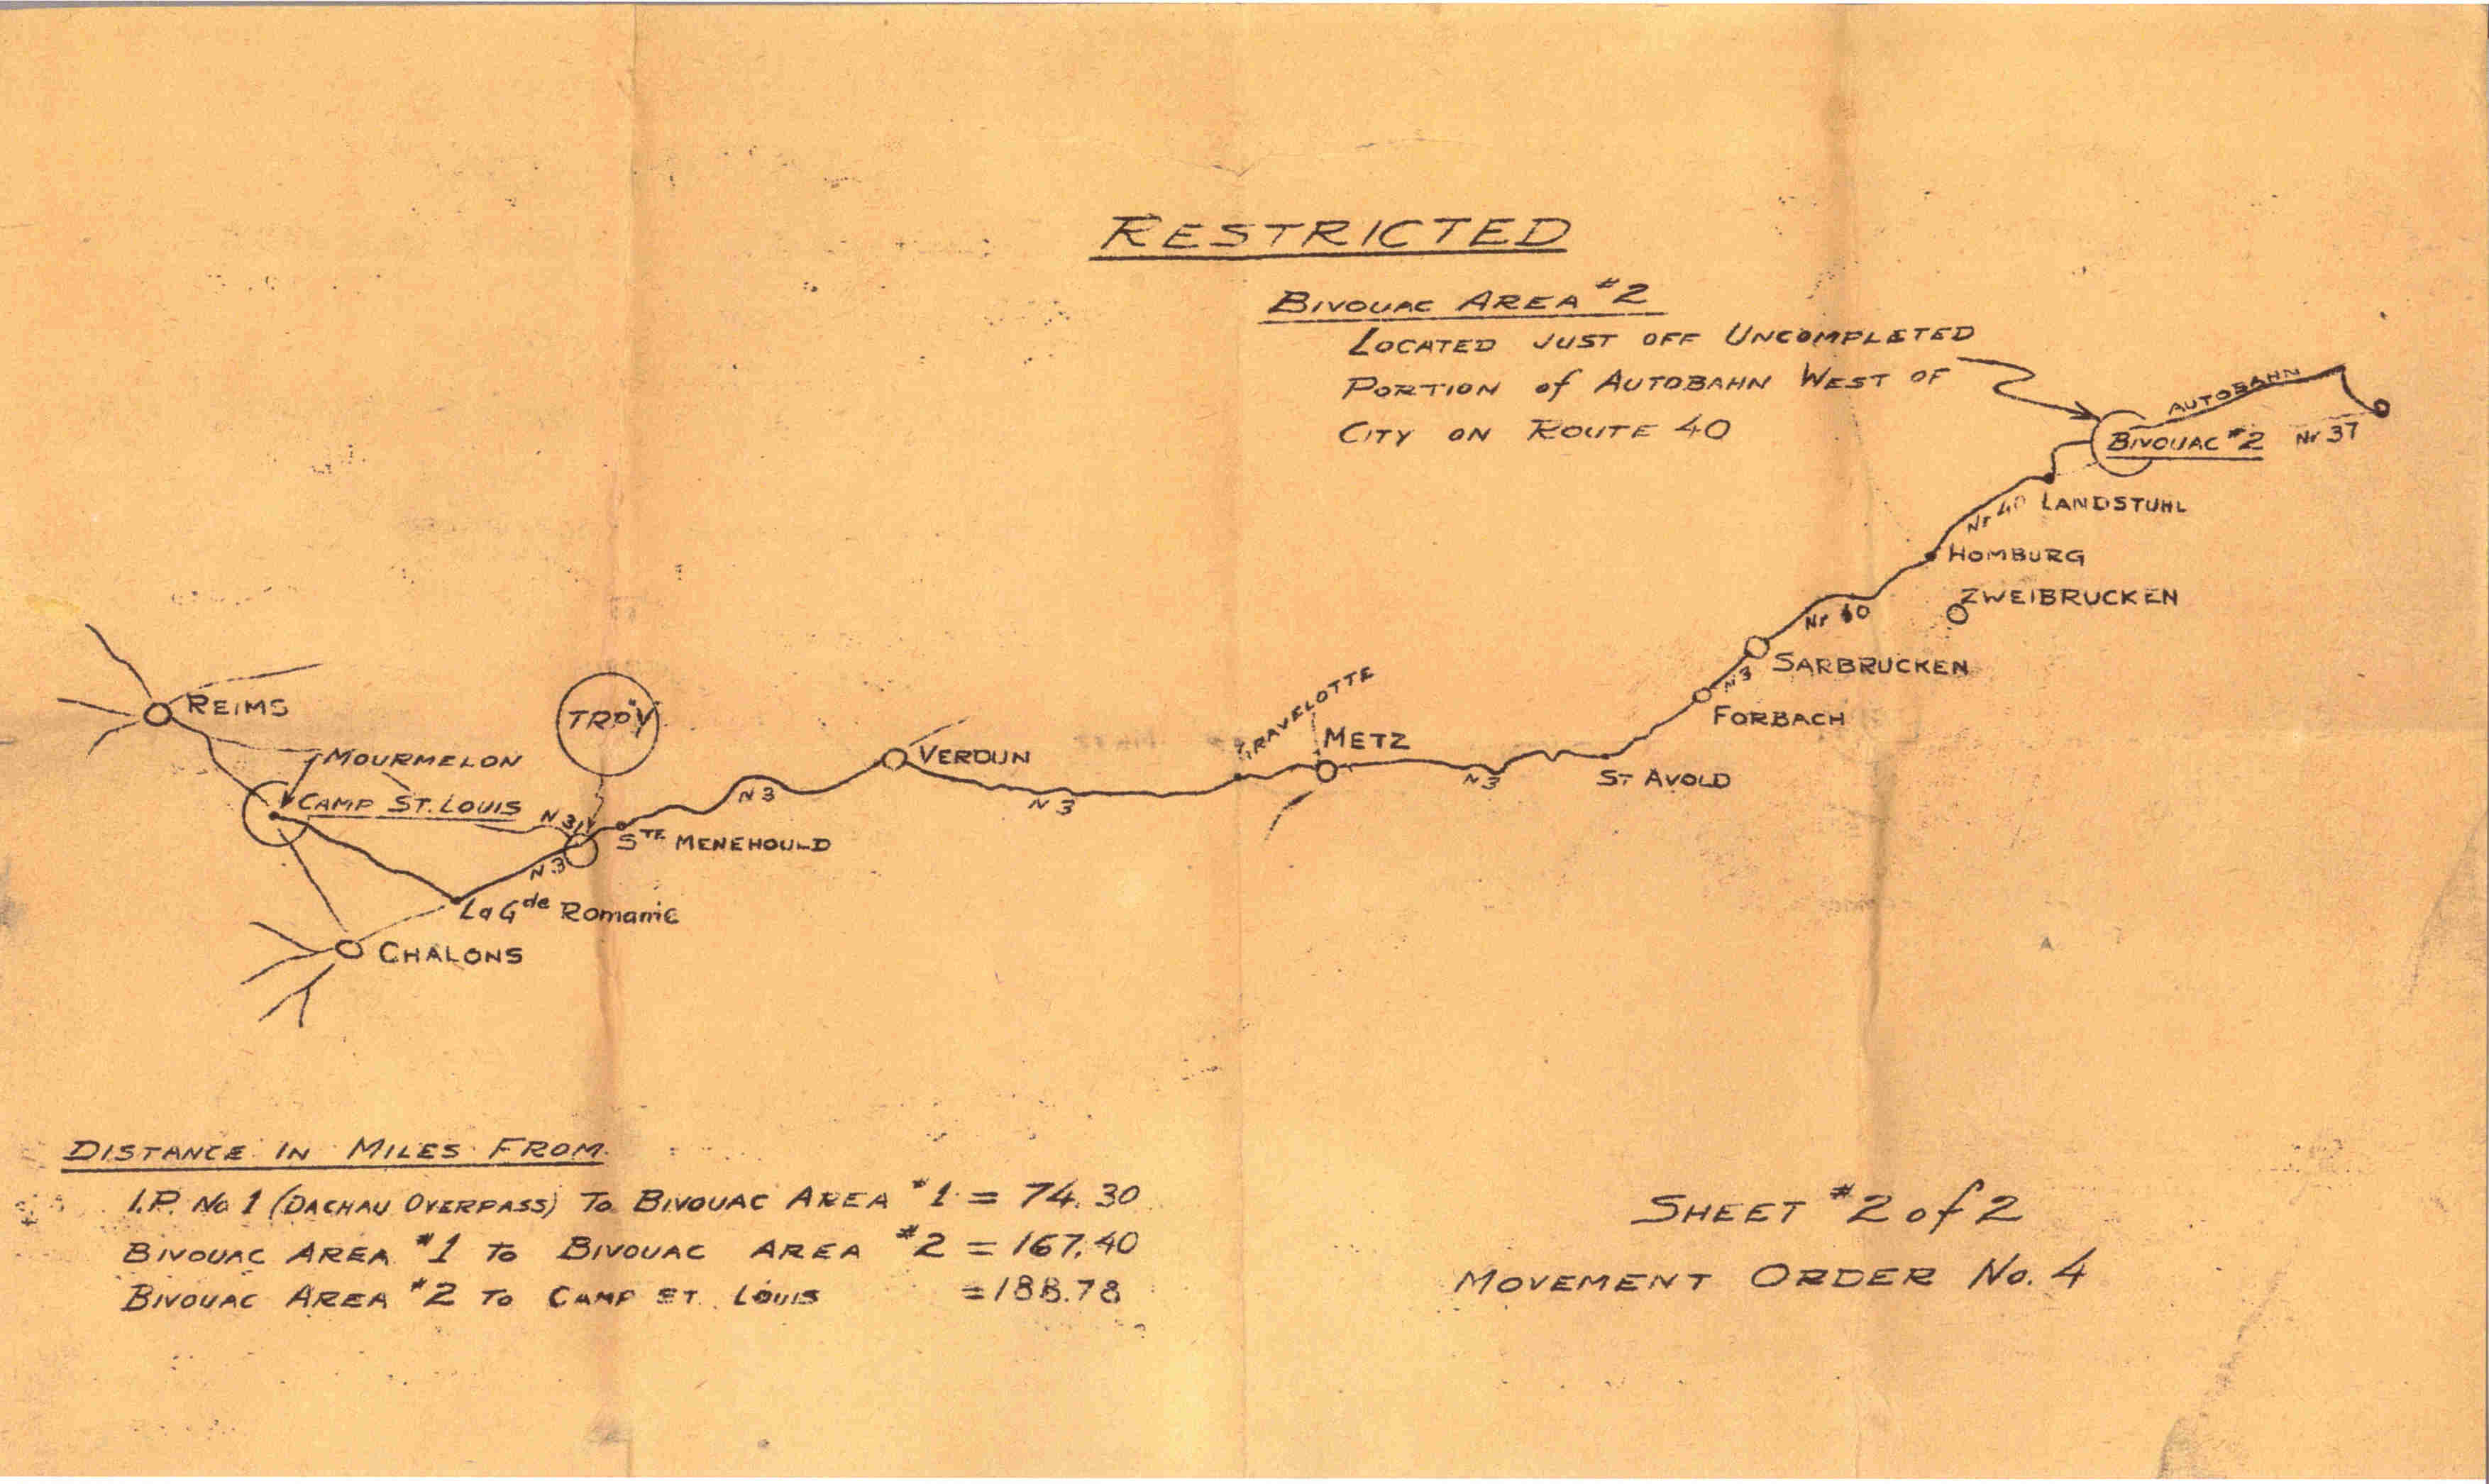 RESTRICTED
BIVOUAC AREA #2
LOCATED JUST OFF UNCOMPLETED
PORTION of AUTOBAHN WEST OF
CITY ON ROUTE 40
AUTOBAHN
BIVOUAC #2
Nr 37
LANDSTUHL
Nr 40
HOMBURG
ZWEIBRUCKEN
Nr 40
SARBRUCKEN
N3
FORBACH
ST AVOLD
N3
METZ
GRAVELOTTE
N3
VERDUN
N3
TROY
STE MENEHOULD
N31
N3
REIMS
MOURMELON
CAMP ST. LOUIS
La Gde Romanie
CHALONS
DISTANCE IN MILES FROM
I.P. No 1 (DACHAU OVERPASS) To BIVOUAC AREA #1 = 74.30
BIVOUAC AREA #1 To BIVOUAC AREA #2 = 167.40
BIVOUAC AREA #2 To CAMP ST. LOUIS = 188.78
SHEET #2 of 2
MOVEMENT ORDER No. 4